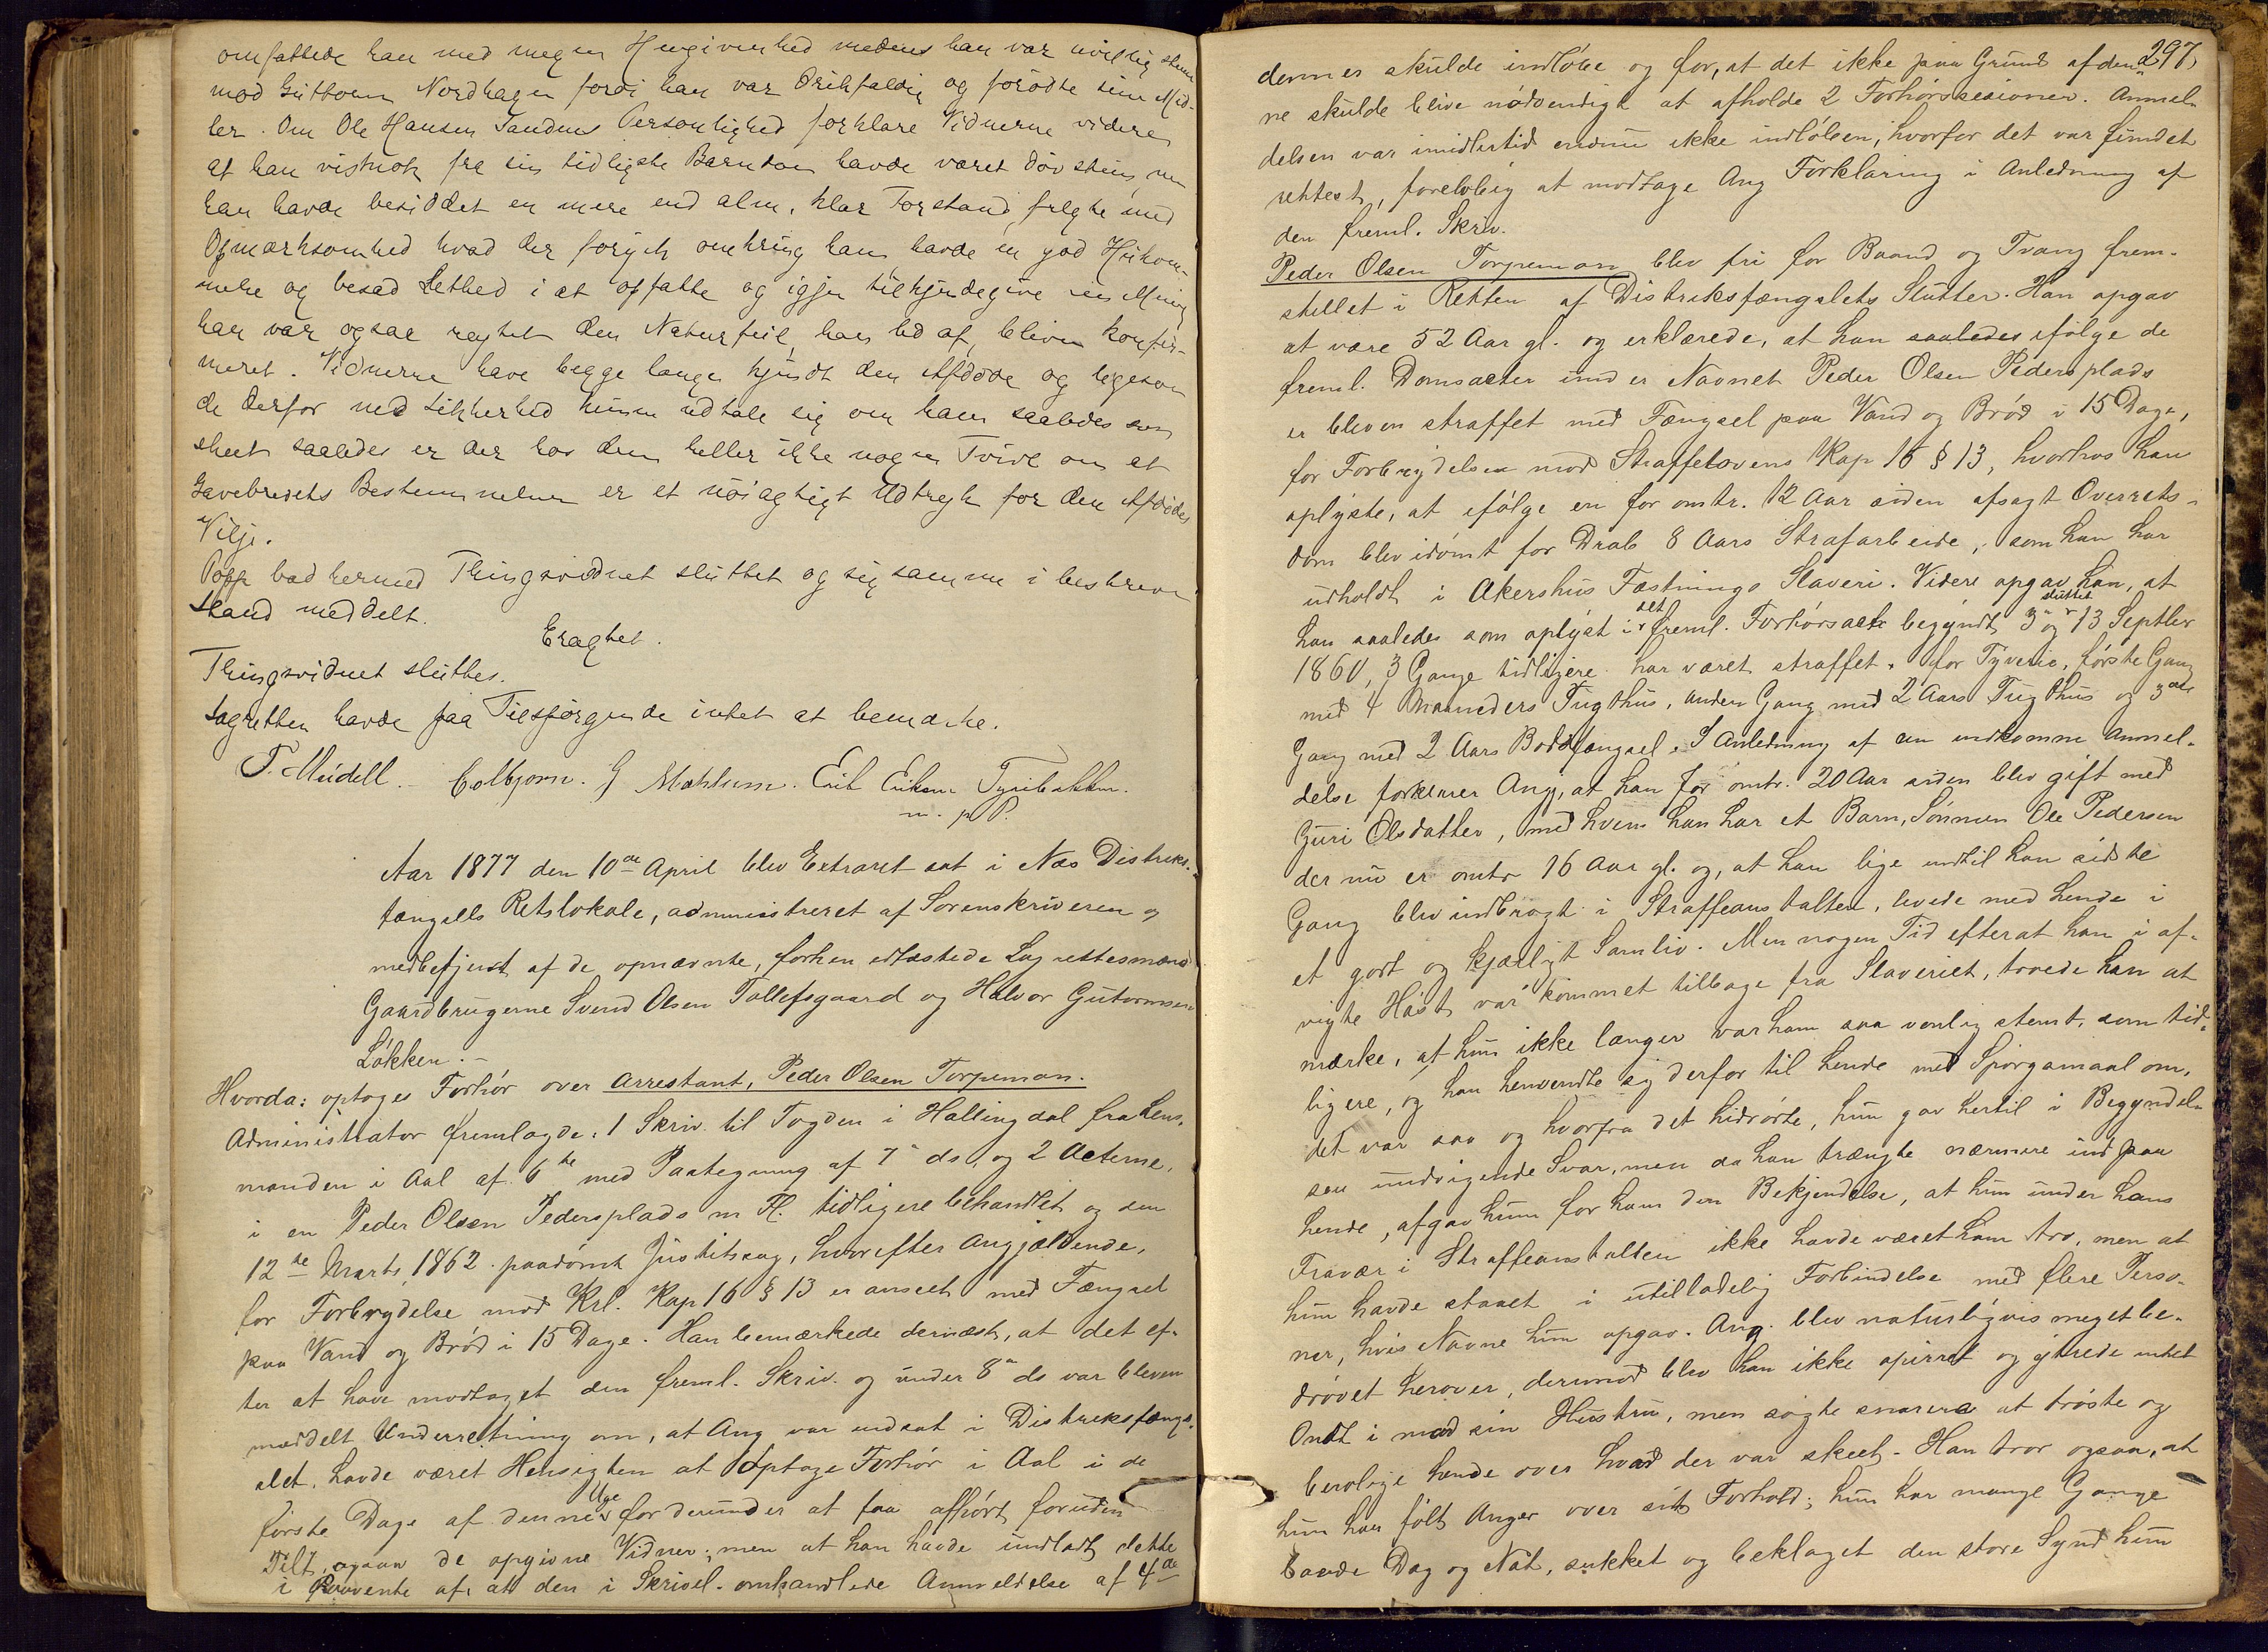 omfattede han med megen Hengivenhed medens han var uvillig stemt
mod Guttorm Nordhagen fordi han var Drikfældig og forødte sine Mid-
ler. Om Ole Hansen Sandens Personlighed forklare Vidnerne videre
at han vistnok fra sin tidligste Barndom havde været døvstum, men
han havde besiddet en mere end alm. klar Forstand, fulgte med
Opmærksomhed hvad der foregik omkring ham havde en god Hukom-
melse og besad Lethed i at opfatte og igjen tilkjendegive sin Mening
han var ogsaa uagtet den Naturfeil, han led af, bleven konfir-
meret. Vidnerne have begge længe kjendt den Afdøde og ligesom
de derfor med Sikkerhed kunne udtale sig om ham saaledes som
skeet saaledes er der hos dem heller ikke nogen Tvivl om at
Gavebrevets Bestemmelser er et nøiagtigt Udtryk for den Afdødes
Vilje.
Popp bad hermed Thingsvidnet sluttet og sig samme i beskreven
Stand meddelt.
Eragtet.
Thingsvidnet sluttes.
Lagretten havde paa Tilspørgende intet at bemærke.
T. Meidell. Colbjørn. G Mæhlum. Erik Eriksen Tyribakken.
m. p P.
Aar 1877 den 10de April blev Extraret sat i Næs Distrikts-
fængsels Retslokale, administreret af Sorenskriveren og
medbetjent af de opnævnte, forhen edfæstede Lagrettesmænd
Gaardbrugerne Svend Olsen Tollefsgaard og Halvor Gutormsen
Løkken.-
Hvorda: optoges Forhør over Arrestant, Peder Olsen Torpeman.
Administrator fremlagde: 1 Skriv. til Fogden i Hallingdal fra Lens-
manden i Aal af 6te med Paategning af 7 ds, og 2 Acterne,
i en Peder Olsen Pedersplads m Fl. tidligere behandlet og den
12te Marts 1862 paadømt Justitssag, hvorefter Angjældende,
for Forbrydelse mod Krl. Kap 16 § 13 er anseet med Fængsel
paa Vand og Brød i 15 Dage. Han bemærkede dernæst, at det ef-
ter at have modtaget den freml. Skriv. og under 8 ds var bleven
meddelt Underretning om, at Ang var indsat i Distriktsfængs-
let, havde været Hensigten at optage Forhør i Aal i de
første Dage af denne Uge for derunder at faa afhørt foruden
Tilt, ogsaa de opgivne Vidner; men at han havde undladt dette
i Paavente af, at den i Skrivel. omhandlede Anmeldelse af 4de
297,
dennes skulde indløbe og for, at det ikke paa Grund af den-
ne skulde blive nødvendigt at afholde 2 Forhørssesioner. Anmel-
delsen var imidlertid endnu ikke indløben, hvorfor det var fundet
rettest, foreløbig at modtage Ang Forklaring i Anledning af
den freml. Skriv.
Peder Olsen Torpeman blev fri for Baand og Tvang frem-
stillet i Retten af Distriktsfængslets Slutter. Han opgav
at være 52 Aar gl. og erklærede, at han saaledes ifølge de
freml. Domsacter under Navnet Peder Olsen Pedersplads
er bleven straffet med Fængsel paa Vand og Brød i 15 Dage,
for Forbrydelse mod Straffelovens Kap 16 § 13, hvorhos han
oplyste, at ifølge en for omtr. 12 Aar siden afsagt Overrets-
dom blev idømt for Drab 8 Aars Strafarbeide, som han har
udholdt i Akershus Fæstnings Slaveri. Videre opgav han, at
han saaledes som oplyst i det freml. Forhørsacte begyndt 3 og sluttet 13 Septbr
1860, 3 Gange tidligere har været straffet for Tyverie, første Gang
med 4 Maaneders Tugthus, anden Gang med 2 Aars Tugthus og 3die
Gang med 2 Aars Bodsfængsel. I Anledning af en indkommen Anmel-
delse forklarer Ang, at han for omtr. 20 Aar siden blev gift med
Guri Olsdatter, med hvem han har et Barn, Sønnen Ole Pedersen
der nu er omtr 16 Aar gl. og, at han lige indtil han sidste
Gang blev indbragt i Straffeanstalten, levede med hende i
et godt og kjærligt Samliv. Men nogen Tid efterat han i af-
vigte Høst var kommet tilbage fra Slaveriet, troede han at
mærke, at hun ikke længer var ham saa venlig stemt, som tid-
ligere, og han henvendte sig derfor til hende med Spørgsmaal om,
det var saa og hvorfra det hidrørte, hun gav hertil i Begyndel-
sen undvigende Svar, men da han trængte nærmere ind paa
hende, afgav hun for ham den Bekjendelse, at hun under hans
Fravær i Straffeanstalten ikke havde været ham tro, men at
hun havde staaet i utilladelig Forbindelse med flere Perso-
ner, hvis Navne hun opgav. Ang. blev naturligvis meget be-
drøvet herover, derimod blev han ikke opirret og ytrede intet
Ondt i mod sin Hustru, men søgte snarere at trøste og
berolige hende over hvad der var skeet. Han tror ogsaa, at
hun har følt Anger over sit Forhold; hun har mange Gange
baade Dag og Nat, sukket og beklaget den store Synd hun